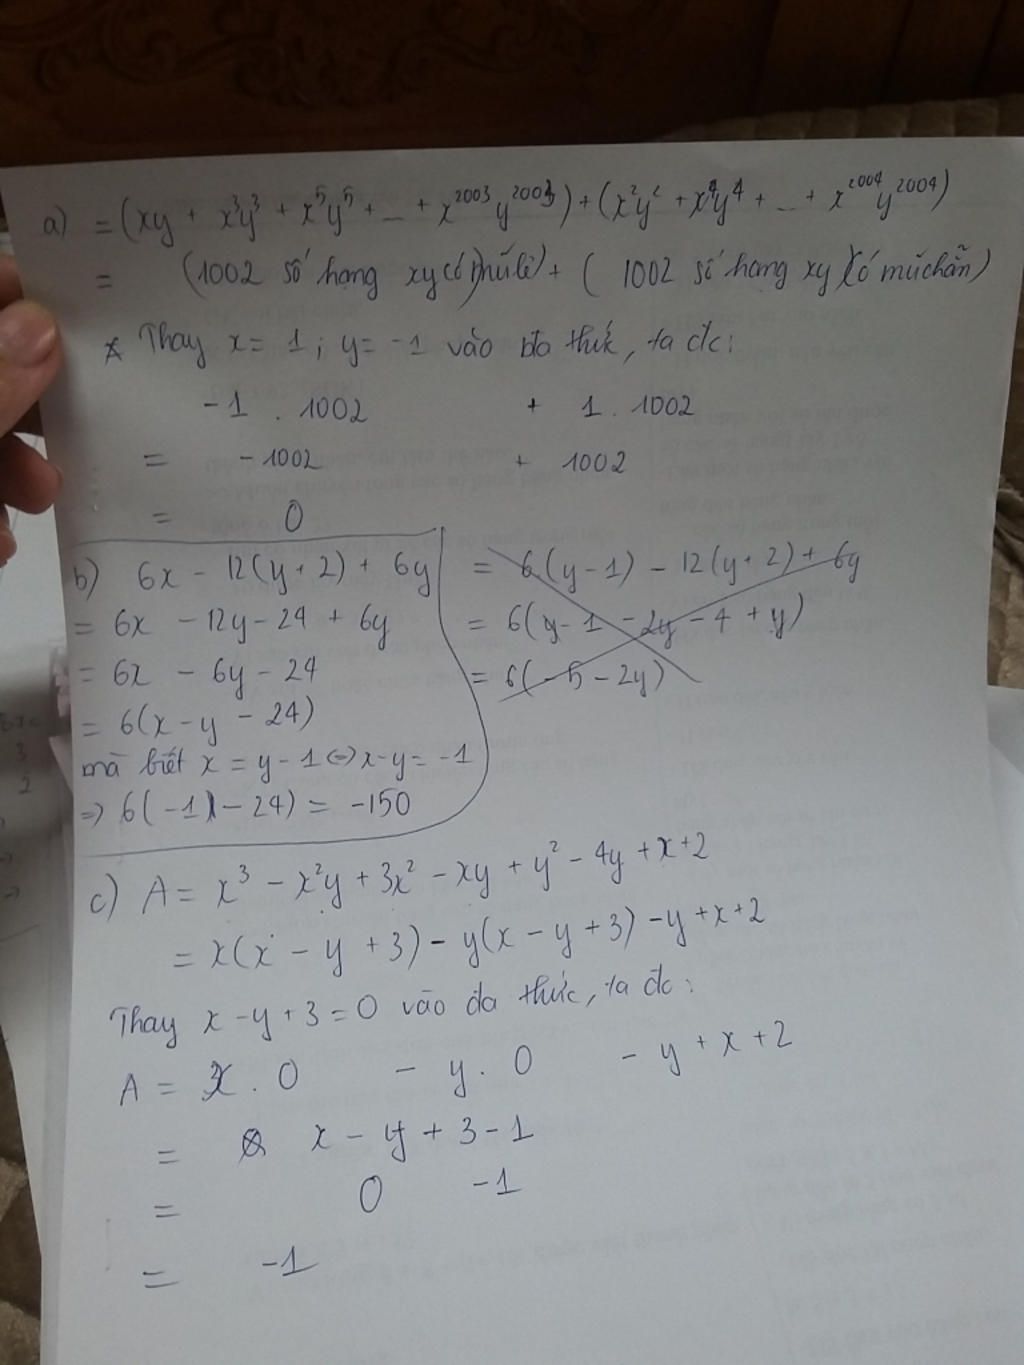 a) = (xy + x³y³ + x⁵y⁵ + ... + x²⁰⁰³y²⁰⁰³) + (x²y² + x⁴y⁴ + ... + x²⁰⁰⁴y²⁰⁰⁴)
= (1002 số hạng xy có mũ lẻ) + ( 1002 số hạng xy có mũ chẵn)
* Thay x = 1 ; y = -1 vào đa thức, ta đc:
-1 . 1002 + 1 . 1002
= -1002 + 1002
= 0
b) 6x - 12(y+2) + 6y
= 6x - 12y - 24 + 6y
= 6x - 6y - 24
= 6(x - y - 24)
mà biết x = y - 1 ⇔ x-y = -1
⇒ 6(-1) - 24) = -150
= 6(y-1) - 12(y+2) + 6y
= 6(y-1 - 2y - 4 + y)
= 6(-5 - 2y)
c) A = x³ - x²y + 3x² - xy + y² - 4y + x + 2
= x(x - y + 3) - y(x - y + 3) - y + x + 2
Thay x - y + 3 = 0 vào đa thức, ta đc:
A = x . 0 - y . 0 - y + x + 2
= x - y + 3 - 1
= 0 -1
= -1